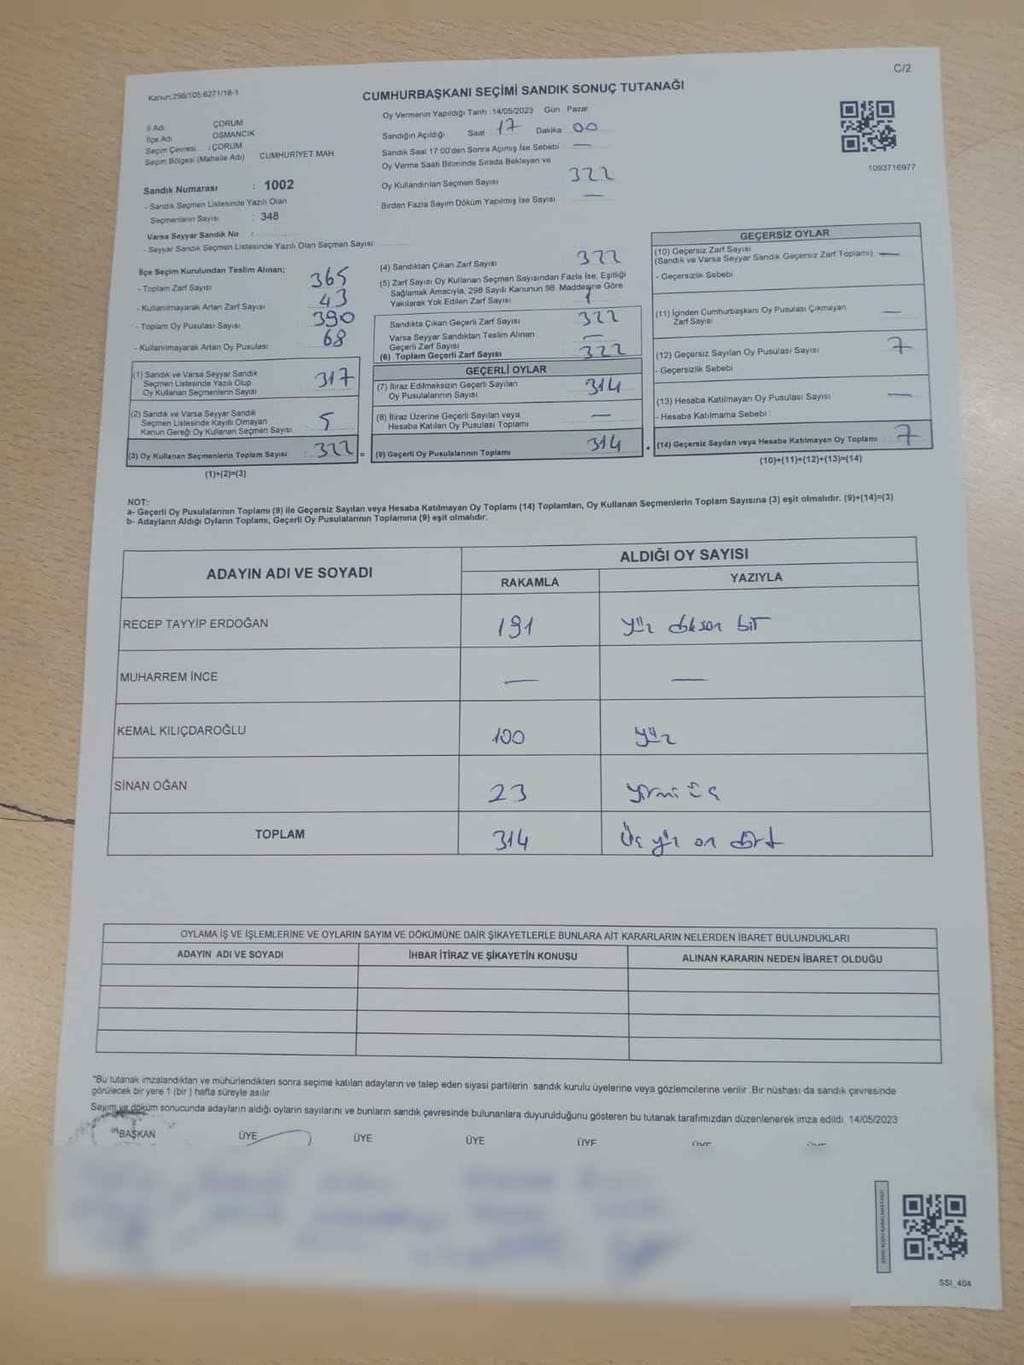 C/2
Kanun:298/105.6271/18-1
CUMHURBAŞKANI SEÇİMİ SANDIK SONUÇ TUTANAĞI
İl Adı ÇORUM
İlçe Adı OSMANCIK
Seçim Çevresi : ÇORUM
Seçim Bölgesi (Mahalle Adı) CUMHURİYET MAH
Sandık Numarası : 1002
- Sandık Seçmen Listesinde Yazılı Olan
Seçmenlerin Sayısı : 348
Varsa Seyyar Sandık No :
- Seyyar Sandık Seçmen Listesinde Yazılı Olan Seçmen Sayısı
Oy Vermenin Yapıldığı Tarih 14/05/2023 Gün Pazar
Sandığın Açıldığı Saat 17 Dakika 00
Sandık Saat 17:00'den Sonra Açımış İse Sebebi —
Oy Verme Saati Bitiminde Sırada Bekleyen ve
Oy Kullandırılan Seçmen Sayısı 322
Birden Fazla Sayım Döküm Yapılmış İse Sayısı —
1093716977
İlçe Seçim Kurulundan Teslim Alınan;
- Toplam Zarf Sayısı 365
- Kullanılmayarak Artan Zarf Sayısı 43
- Toplam Oy Pusulası Sayısı 390
- Kullanılmayarak Artan Oy Pusulası 68
(1) Sandık ve Varsa Seyyar Sandık
Seçmen Listesinde Yazılı Olup
Oy Kullanan Seçmenlerin Sayısı 317
(2) Sandık ve Varsa Seyyar Sandık
Seçmen Listesinde Kayıtlı Olmayan
Kanun Gereği Oy Kullanan Seçmen Sayısı 5
(3) Oy Kullanan Seçmenlerin Toplam Sayısı 322 =
(1)+(2)=(3)
(4) Sandıktan Çıkan Zarf Sayısı 322
(5) Zarf Sayısı Oy Kullanan Seçmen Sayısından Fazla İse, Eşitliği
Sağlamak Amacıyla, 298 Sayılı Kanunun 98. Maddesine Göre
Yakılarak Yok Edilen Zarf Sayısı
Sandıkta Çıkan Geçerli Zarf Sayısı 322
Varsa Seyyar Sandıktan Teslim Alınan
Geçerli Zarf Sayısı —
(6) Toplam Geçerli Zarf Sayısı 322
GEÇERLİ OYLAR
(7) İtiraz Edilmeksizin Geçerli Sayılan
Oy Pusulalarının Sayısı 314
(8) İtiraz Üzerine Geçerli Sayılan veya
Hesaba Katılan Oy Pusulası Toplamı —
(9) Geçerli Oy Pusulalarının Toplamı 314
GEÇERSİZ OYLAR
(10) Geçersiz Zarf Sayısı
(Sandık ve Varsa Seyyar Sandık Geçersiz Zarf Toplamı) —
- Geçersizlik Sebebi
(11) İçinden Cumhurbaşkanı Oy Pusulası Çıkmayan
Zarf Sayısı —
(12) Geçersiz Sayılan Oy Pusulası Sayısı 7
- Geçersizlik Sebebi
(13) Hesaba Katılmayan Oy Pusulası Sayısı —
- Hesaba Katılmama Sebebi
(14) Geçersiz Sayılan veya Hesaba Katılmayan Oy Toplamı 7
(10)+(11)+(12)+(13)=(14)
NOT:
a- Geçerli Oy Pusulalarının Toplamı (9) ile Geçersiz Sayılan veya Hesaba Katılmayan Oy Toplamı (14) Toplamları, Oy Kullanan Seçmenlerin Toplam Sayısına (3) eşit olmalıdır. (9)+(14)=(3)
b- Adayların Aldığı Oyların Toplamı, Geçerli Oy Pusulalarının Toplamına (9) eşit olmalıdır.
ADAYIN ADI VE SOYADI
ALDIĞI OY SAYISI
RAKAMLA YAZIYLA
RECEP TAYYİP ERDOĞAN 191 yüz doksan bir
MUHARREM İNCE — —
KEMAL KILIÇDAROĞLU 100 yüz
SİNAN OĞAN 23 yirmi üç
TOPLAM 314 Üç yüz on dört
OYLAMA İŞ VE İŞLEMLERİNE VE OYLARIN SAYIM VE DÖKÜMÜNE DAİR ŞİKAYETLERLE BUNLARA AİT KARARLARIN NELERDEN İBARET BULUNDUKLARI
ADAYIN ADI VE SOYADI İHBAR İTİRAZ VE ŞİKAYETİN KONUSU ALINAN KARARIN NEDEN İBARET OLDUĞU
*Bu tutanak imzalandıktan ve mühürlendikten sonra seçime katılan adayların ve talep eden siyasi partilerin sandık kurulu üyelerine veya gözlemcilerine verilir .Bir nüshası da sandık çevresinde
görülecek bir yere 1 (bir ) hafta süreyle asılır
Sayım ve döküm sonucunda adayların aldığı oyların sayılarını ve bunların sandık çevresinde bulunanlara duyurulduğunu gösteren bu tutanak tarafımızdan düzenlenerek imza edildi 14/05/2023
BAŞKAN ÜYE ÜYE ÜYE ÜYE
SSI_404